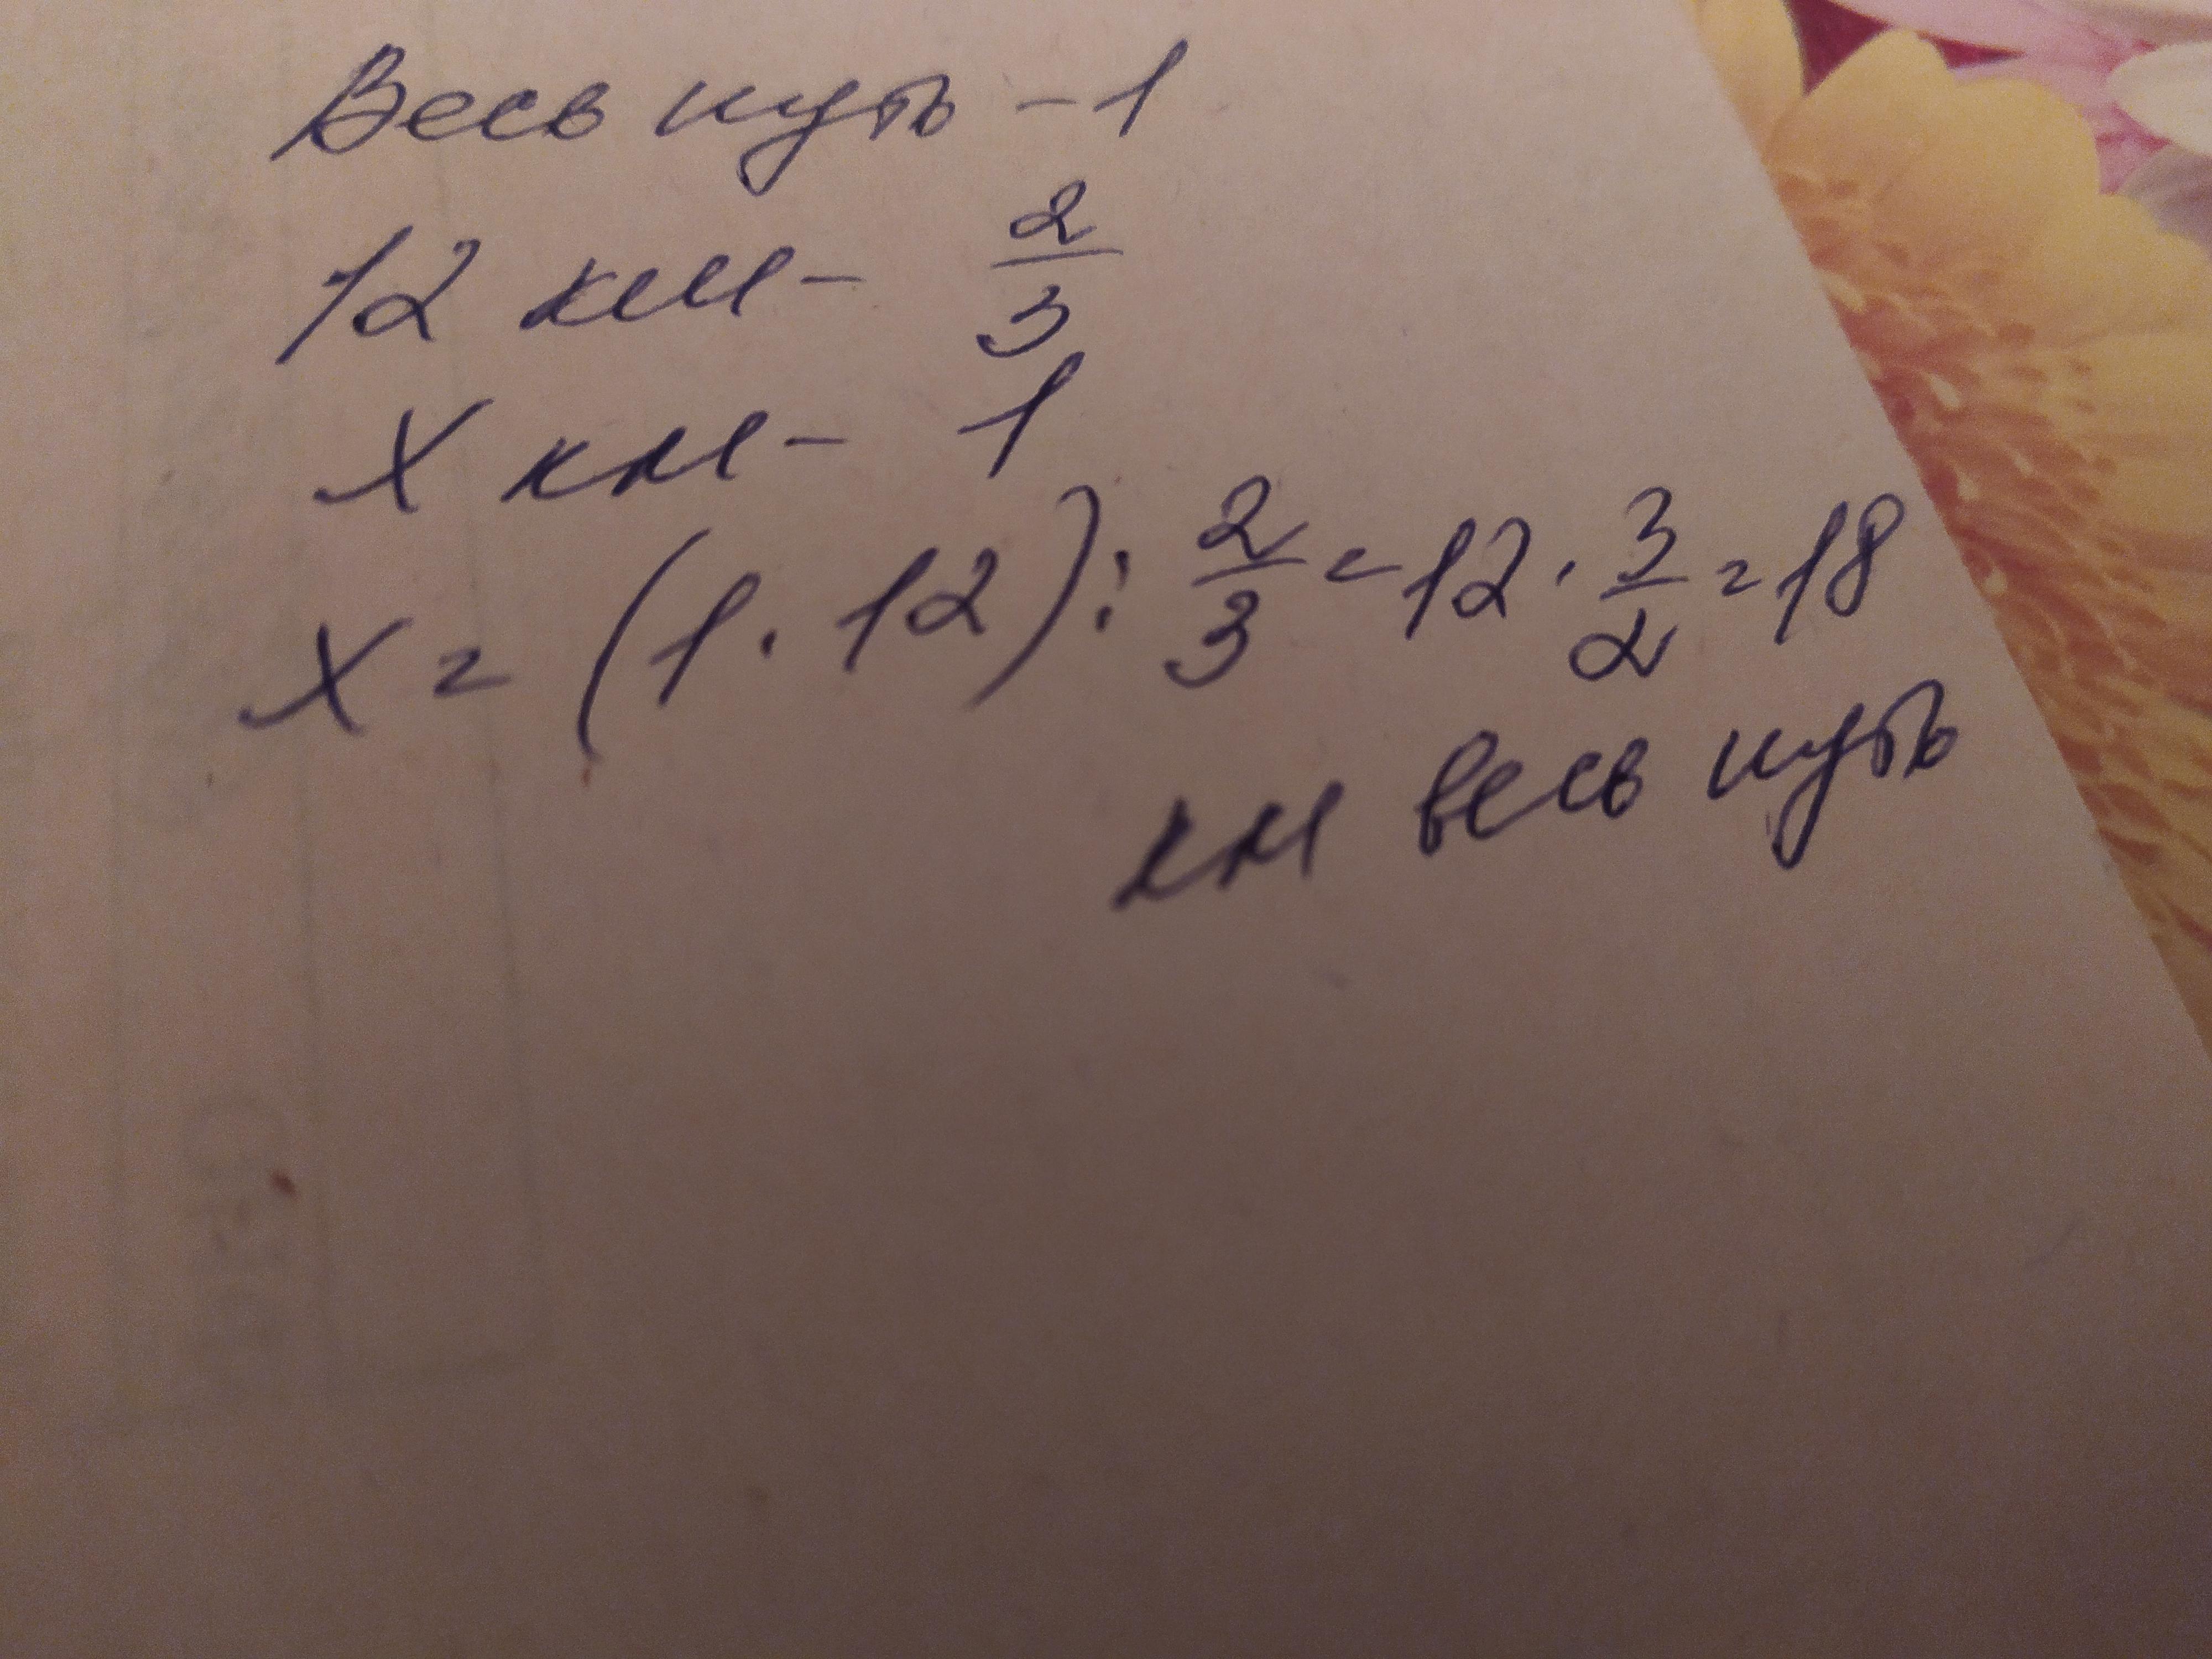 Весь путь - 1
12 км - 2/3
х км - 1
х = (1 · 12) : 2/3 = 12 · 3/2 = 18
км весь путь